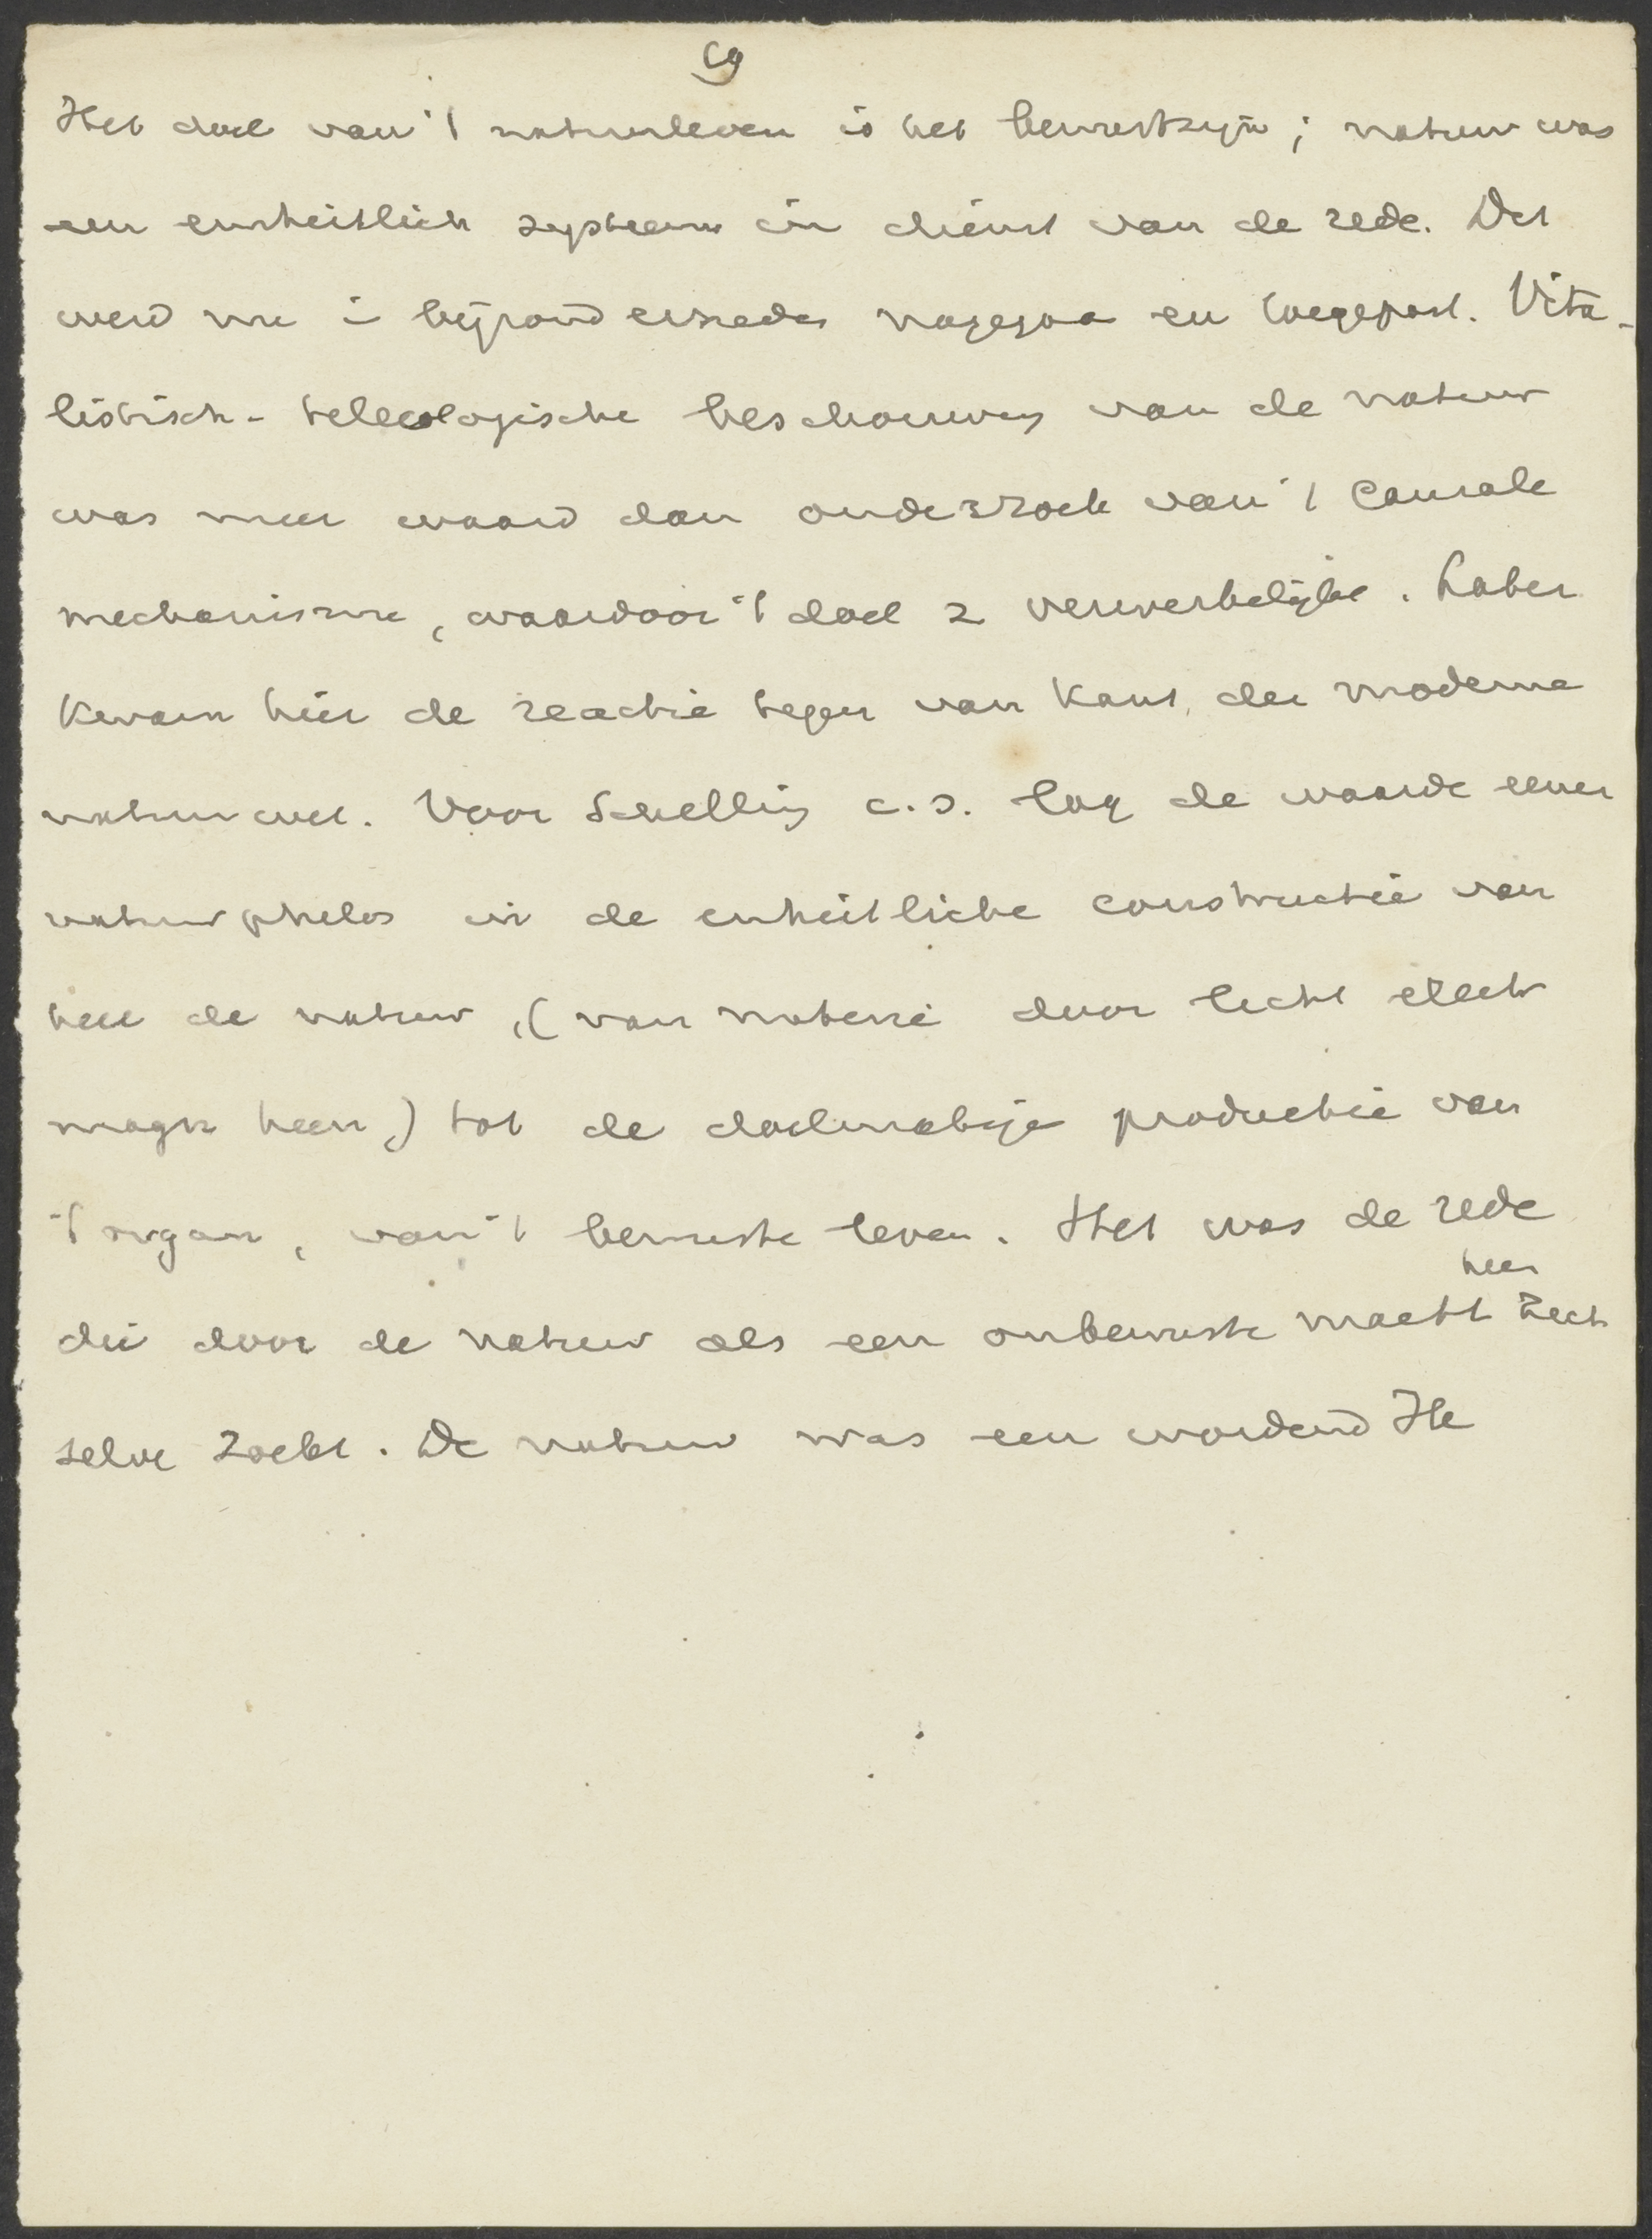 69
Het doel van 't natuurleven is het bewustzijn; natuur was
een einheitlich systeem in dienst van de rede. Dit
werd nu in bijzond nagegaa en toegepast. Vita-
listisch-teleologische beschouwing van de natuur
was meer waard dan onderzoek van 't causale
mechanisme, waardoor 't doel z verwerkelijkt. Later
kwam hier de reactie tegen van Kant, der moderne
natuurwet. Voor Schelling c.s. lag de waarde eener
natuurphilos in de einheitliche constructie van
heel de natuur, (van materie door licht electr
magn heen,) tot de doelmatige productie van
't organ, van 't bewuste leven. Het was de rede
heen
die door de natuur als een onbewuste macht zich
selve zoekt. De natuur was een wordend Ik